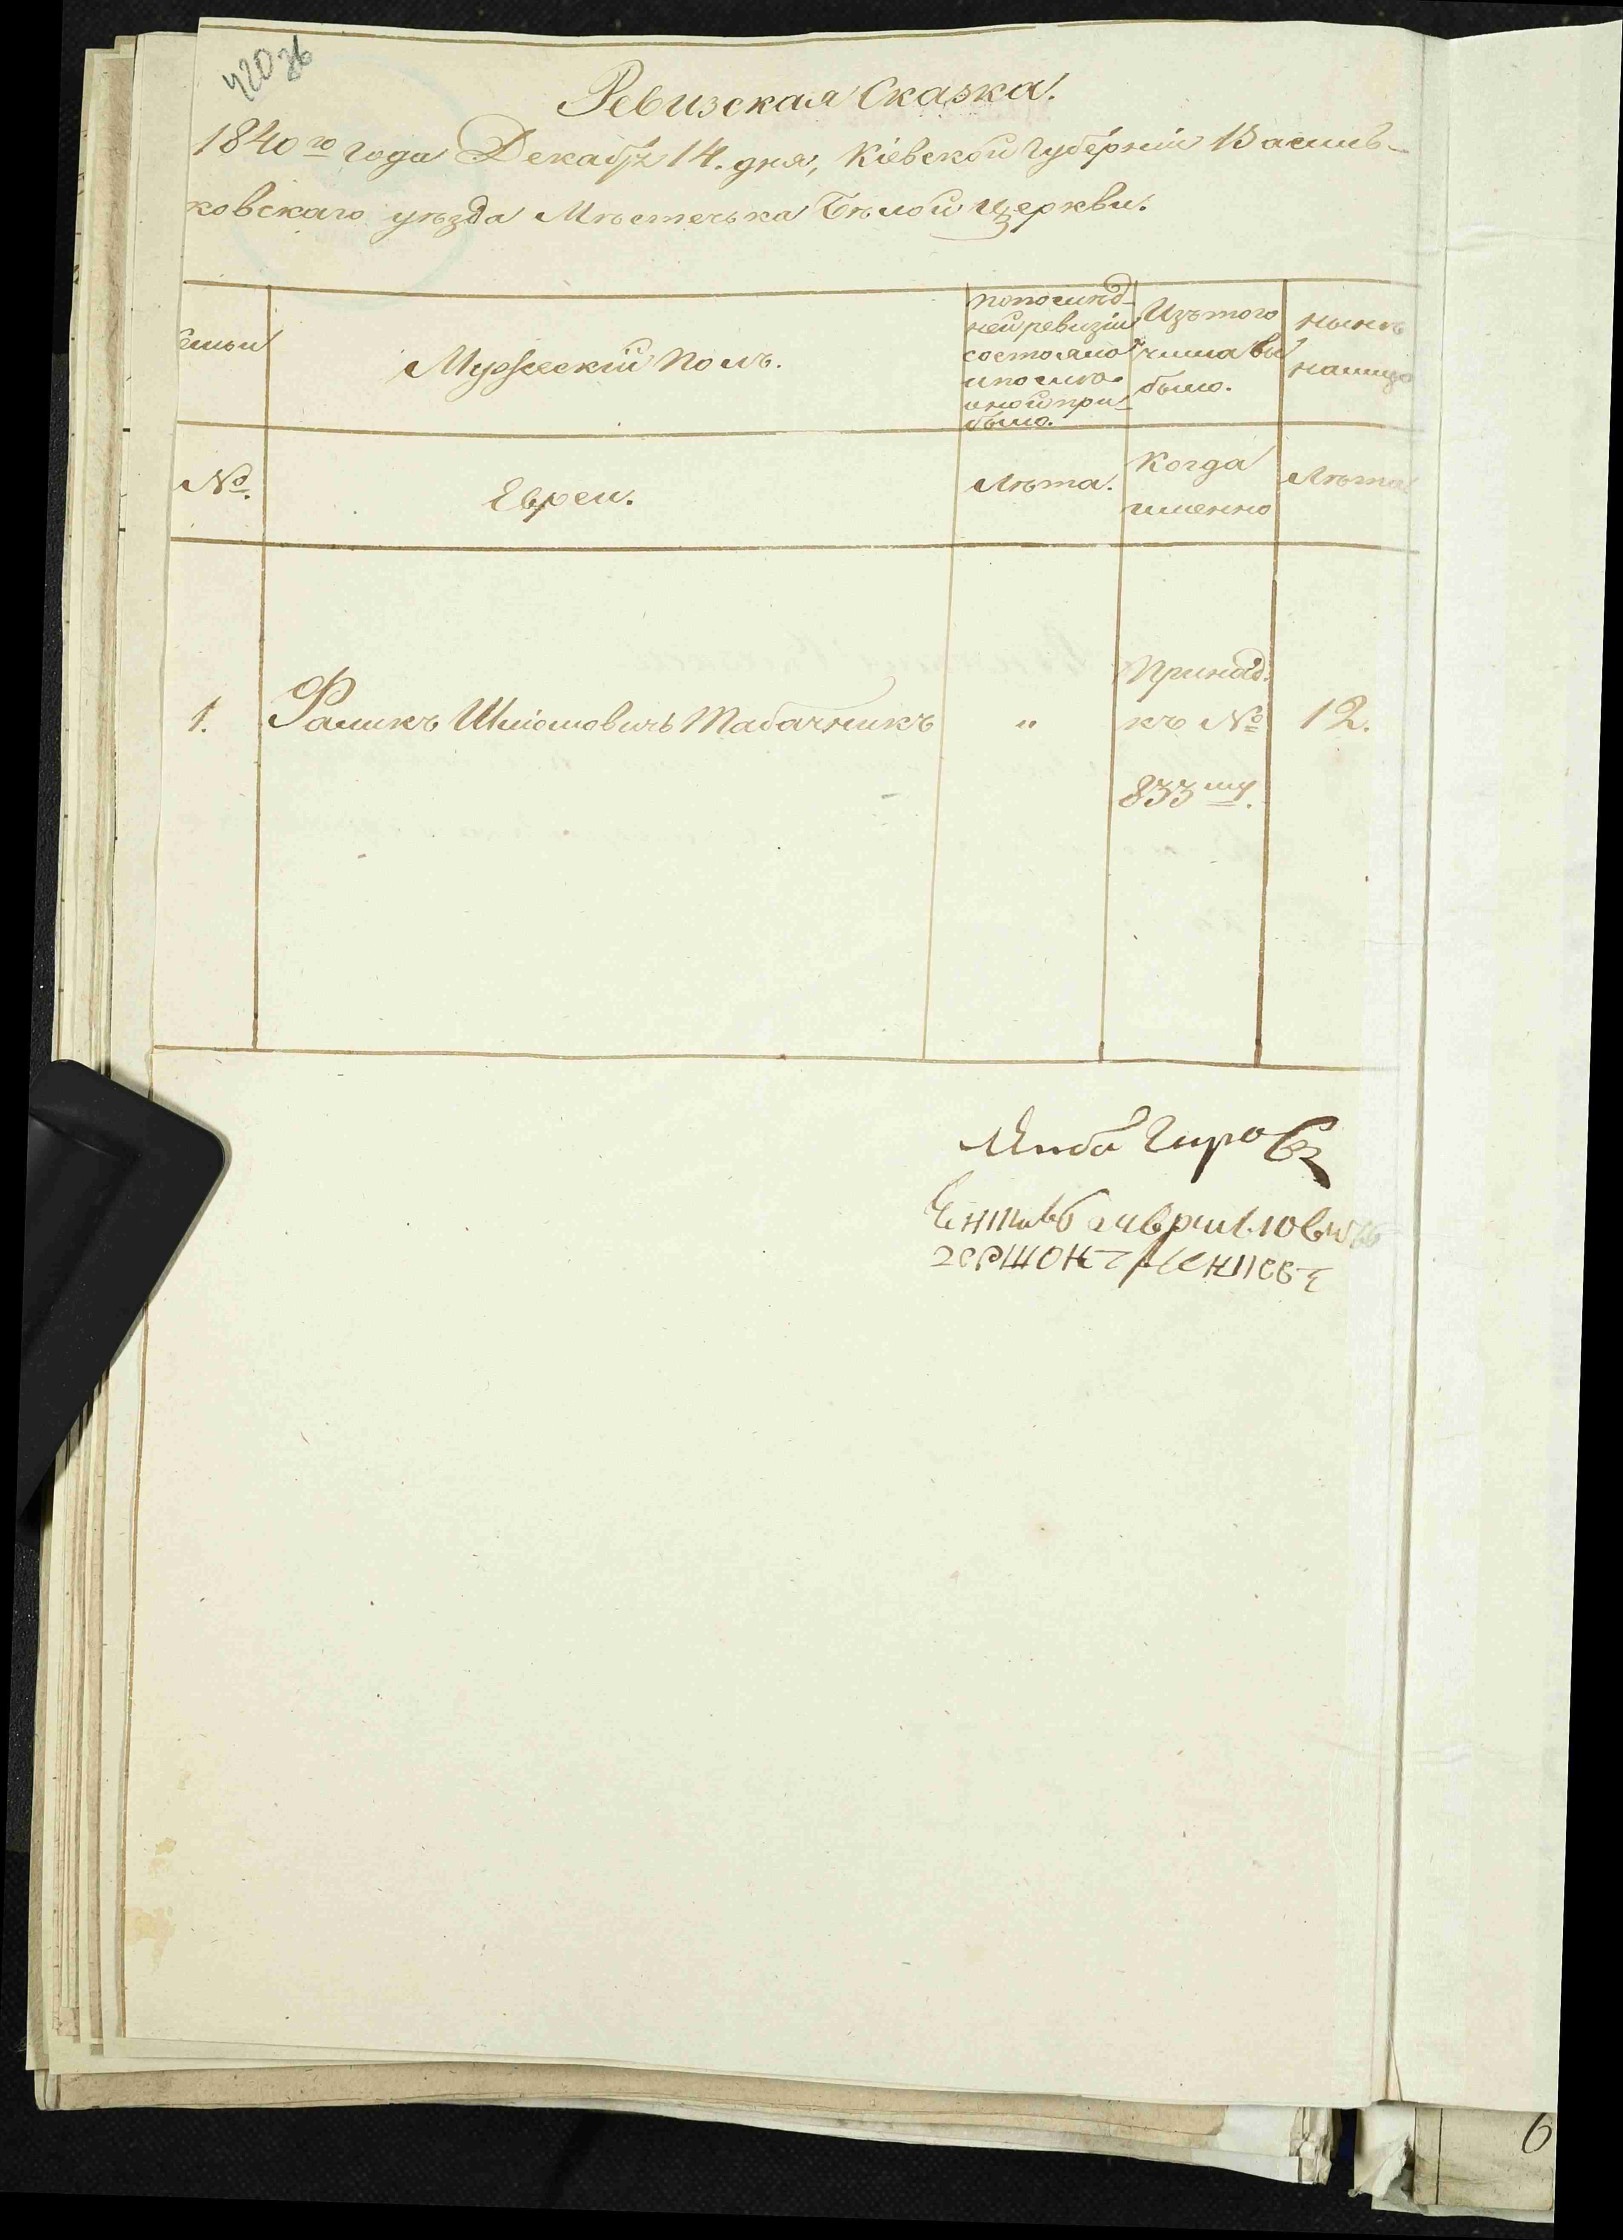 420 зв
Ревизская Сказка.
1840го года Декабря 14. дня, Кіевской Губерніи Василь-
ковскаго уѣзда Мѣстечька Бѣлой Церкви.
Семьи
Мужескій Полъ.
По послѣд-
ней ревизіи
состояло
и послѣ
оной при-
было.
Изъ того
числа вы
было.
Нынѣ
налицо
№.
Евреи.
Лѣта.
Когда
именно
Лѣта
1.
Фаликъ Шліомовичъ Табачникъ
"
Принад.
къ №
833му.
12.
6